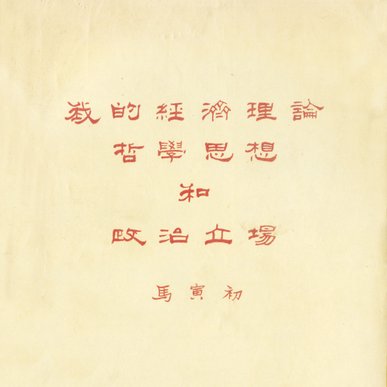 我的經濟理論
哲學思想
和
政治立場
馬寅初